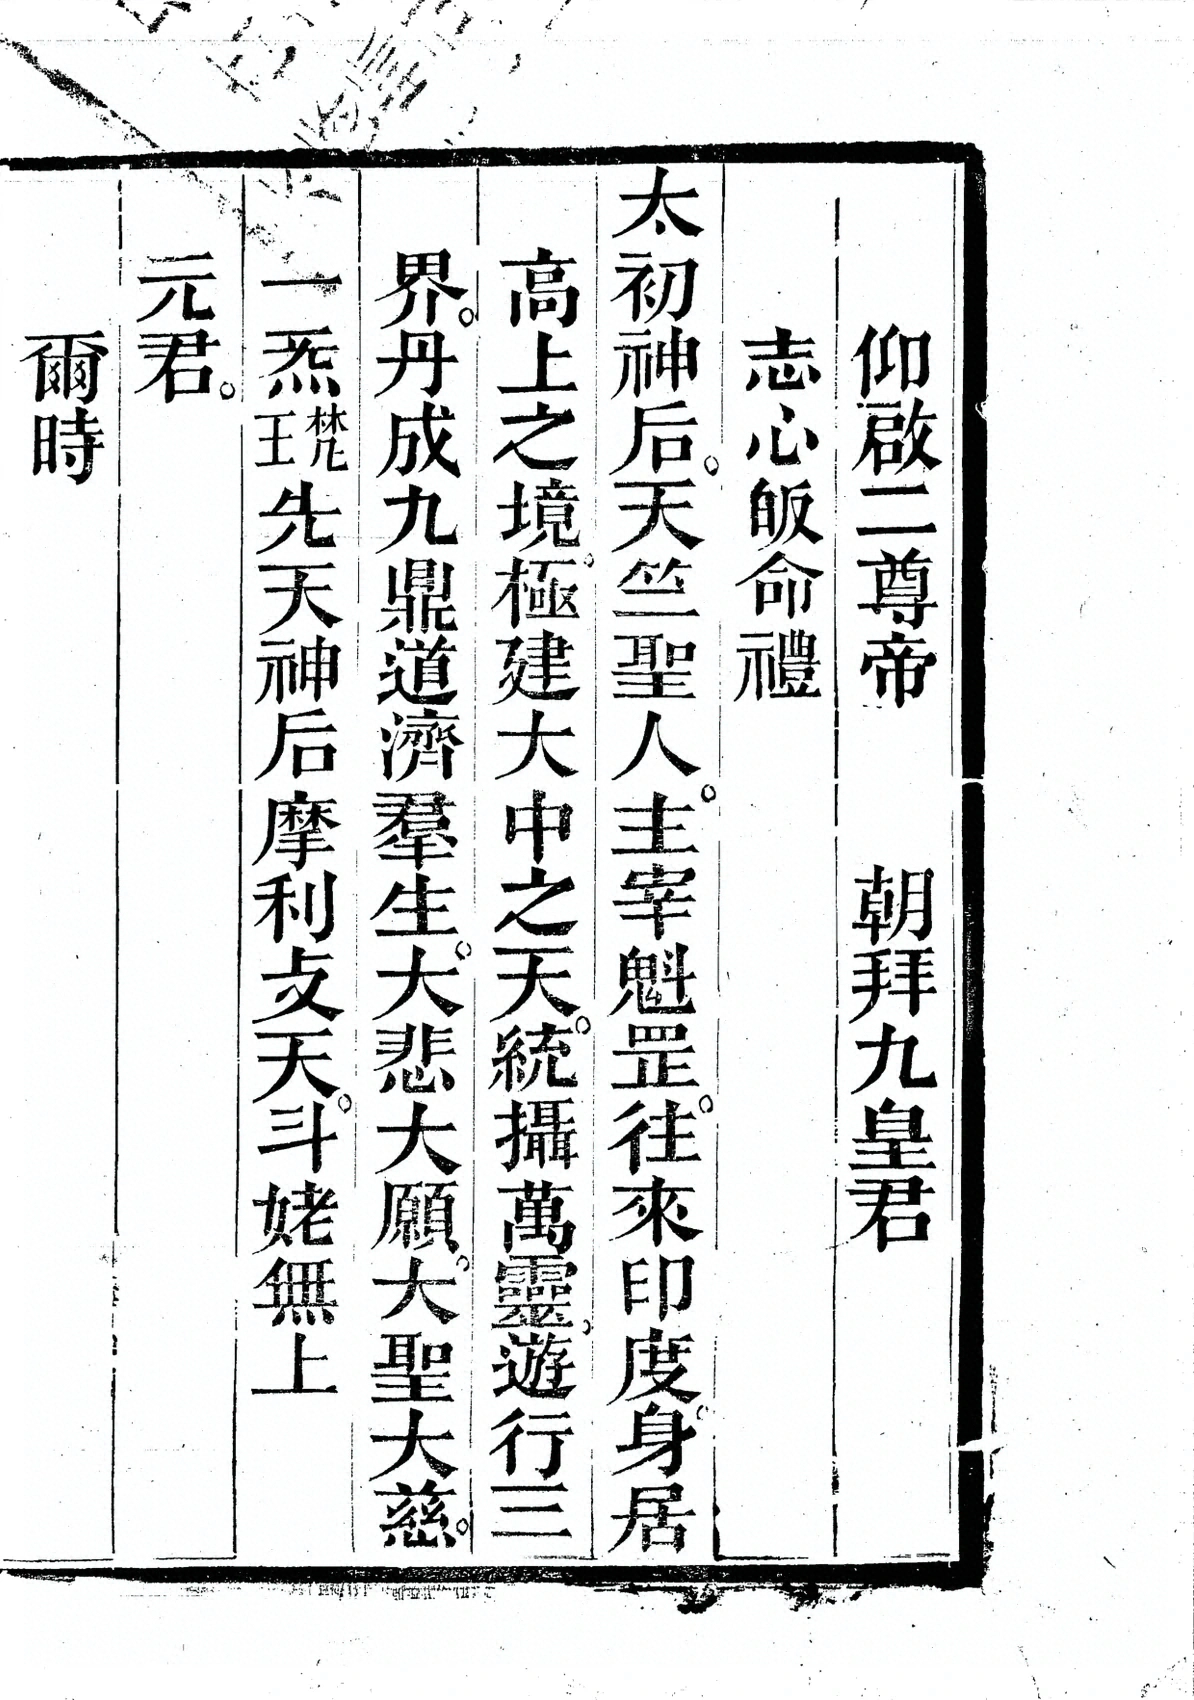 仰啟二尊帝　朝拜九皇君
志心皈命禮
太初神后。天竺聖人。主宰魁罡。往來印度。身居
高上之境。極建大中之天。統攝萬靈。遊行三
界。丹成九鼎道濟羣生。大悲大願。大聖大慈。
一炁梵王先天神后摩利支天。斗姥無上
元君。
爾時